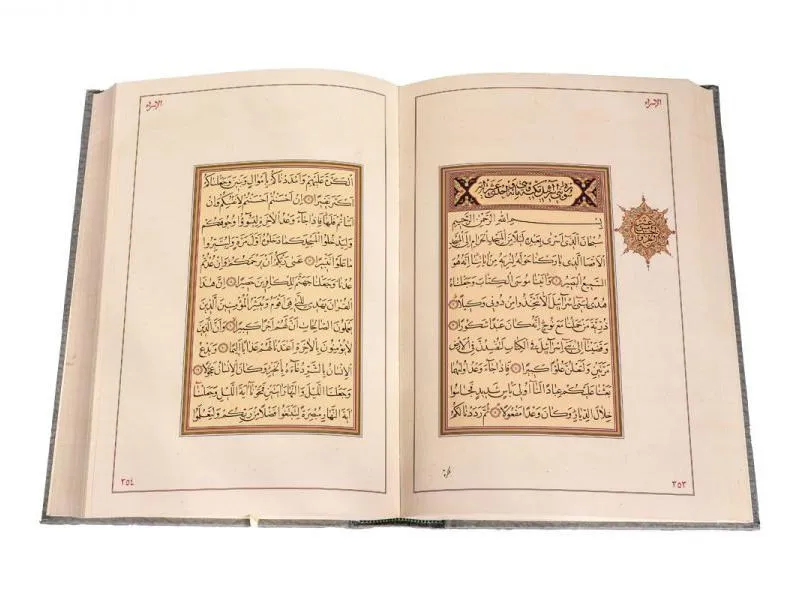 الإسراء
بِسْمِ اللهِ الرَّحْمٰنِ الرَّحِيمِ
سُبْحَانَ الَّذِي أَسْرٰى بِعَبْدِهِ لَيْلًا مِنَ الْمَسْجِدِ الْحَرَامِ إِلَى الْمَسْجِدِ
الْأَقْصَا الَّذِي بَارَكْنَا حَوْلَهُ لِنُرِيَهُ مِنْ آيَاتِنَا إِنَّهُ هُوَ
السَّمِيعُ الْبَصِيرُ وَآتَيْنَا مُوسَى الْكِتَابَ وَجَعَلْنَاهُ
هُدًى لِبَنِي إِسْرَائِيلَ أَلَّا تَتَّخِذُوا مِنْ دُونِي وَكِيلًا
ذُرِّيَّةَ مَنْ حَمَلْنَا مَعَ نُوحٍ إِنَّهُ كَانَ عَبْدًا شَكُورًا
وَقَضَيْنَا إِلٰى بَنِي إِسْرَائِيلَ فِي الْكِتَابِ لَتُفْسِدُنَّ فِي الْأَرْضِ
مَرَّتَيْنِ وَلَتَعْلُنَّ عُلُوًّا كَبِيرًا فَإِذَا جَاءَ وَعْدُ أُولٰيهُمَا
بَعَثْنَا عَلَيْكُمْ عِبَادًا لَنَا أُولِي بَأْسٍ شَدِيدٍ فَجَاسُوا
خِلَالَ الدِّيَارِ وَكَانَ وَعْدًا مَفْعُولًا ثُمَّ رَدَدْنَا لَكُمُ
٣٥٣
الإسراء
الْكَرَّةَ عَلَيْهِمْ وَأَمْدَدْنَاكُمْ بِأَمْوَالٍ وَبَنِينَ وَجَعَلْنَاكُمْ
أَكْثَرَ نَفِيرًا إِنْ أَحْسَنْتُمْ أَحْسَنْتُمْ لِأَنْفُسِكُمْ وَإِنْ
أَسَأْتُمْ فَلَهَا فَإِذَا جَاءَ وَعْدُ الْآخِرَةِ لِيَسُوؤُا وُجُوهَكُمْ
وَلِيَدْخُلُوا الْمَسْجِدَ كَمَا دَخَلُوهُ أَوَّلَ مَرَّةٍ وَلِيُتَبِّرُوا
مَا عَلَوْا تَتْبِيرًا عَسٰى رَبُّكُمْ أَنْ يَرْحَمَكُمْ وَإِنْ عُدْتُمْ
عُدْنَا وَجَعَلْنَا جَهَنَّمَ لِلْكَافِرِينَ حَصِيرًا إِنَّ هٰذَا
الْقُرْآنَ يَهْدِي لِلَّتِي هِيَ أَقْوَمُ وَيُبَشِّرُ الْمُؤْمِنِينَ الَّذِينَ
يَعْمَلُونَ الصَّالِحَاتِ أَنَّ لَهُمْ أَجْرًا كَبِيرًا وَأَنَّ الَّذِينَ
لَا يُؤْمِنُونَ بِالْآخِرَةِ أَعْتَدْنَا لَهُمْ عَذَابًا أَلِيمًا وَيَدْعُ
الْإِنْسَانُ بِالشَّرِّ دُعَاءَهُ بِالْخَيْرِ وَكَانَ الْإِنْسَانُ عَجُولًا
وَجَعَلْنَا اللَّيْلَ وَالنَّهَارَ آيَتَيْنِ فَمَحَوْنَا آيَةَ اللَّيْلِ وَجَعَلْنَا
آيَةَ النَّهَارِ مُبْصِرَةً لِتَبْتَغُوا فَضْلًا مِنْ رَبِّكُمْ وَلِتَعْلَمُوا
٣٥٤